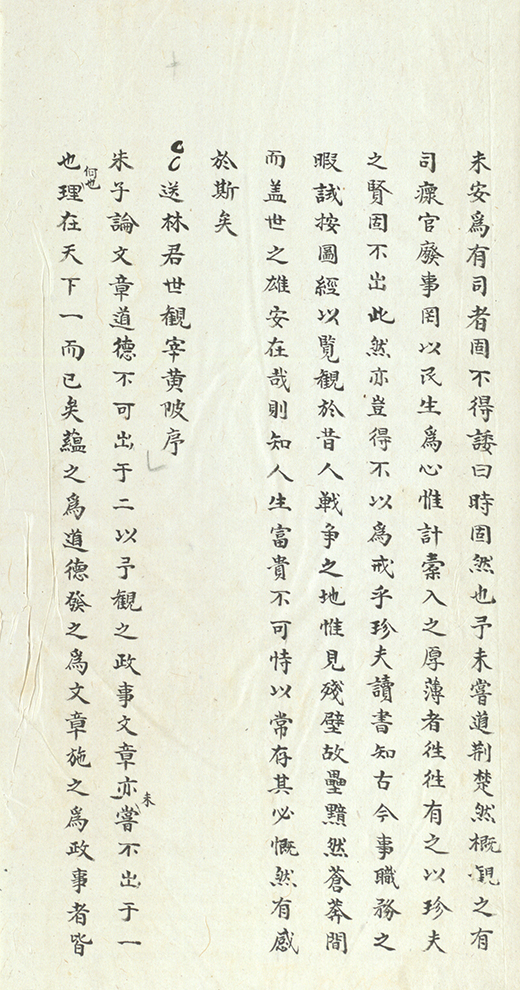 未安為有司者固不得諉曰時固然也予未嘗道荆楚然概觀之有
司瘝官廢事罔以民生為心惟計橐入之厚薄者徃徃有之以珍夫
之賢固不出此然亦豈得不以為戒乎珍夫讀書知古今事職務之
暇試按圖經以覧觀於昔人戰爭之地惟見殘壁故壘黯然蒼莽間
而盖世之雄安在哉則知人生富貴不可恃以常存其必慨然有感
於斯矣
送林君世觀宰黄陂序
朱子論文章道德不可出于二以予觀之政事文章亦未嘗不出于一
也何也理在天下一而已矣蘊之為道德發之為文章施之為政事者皆